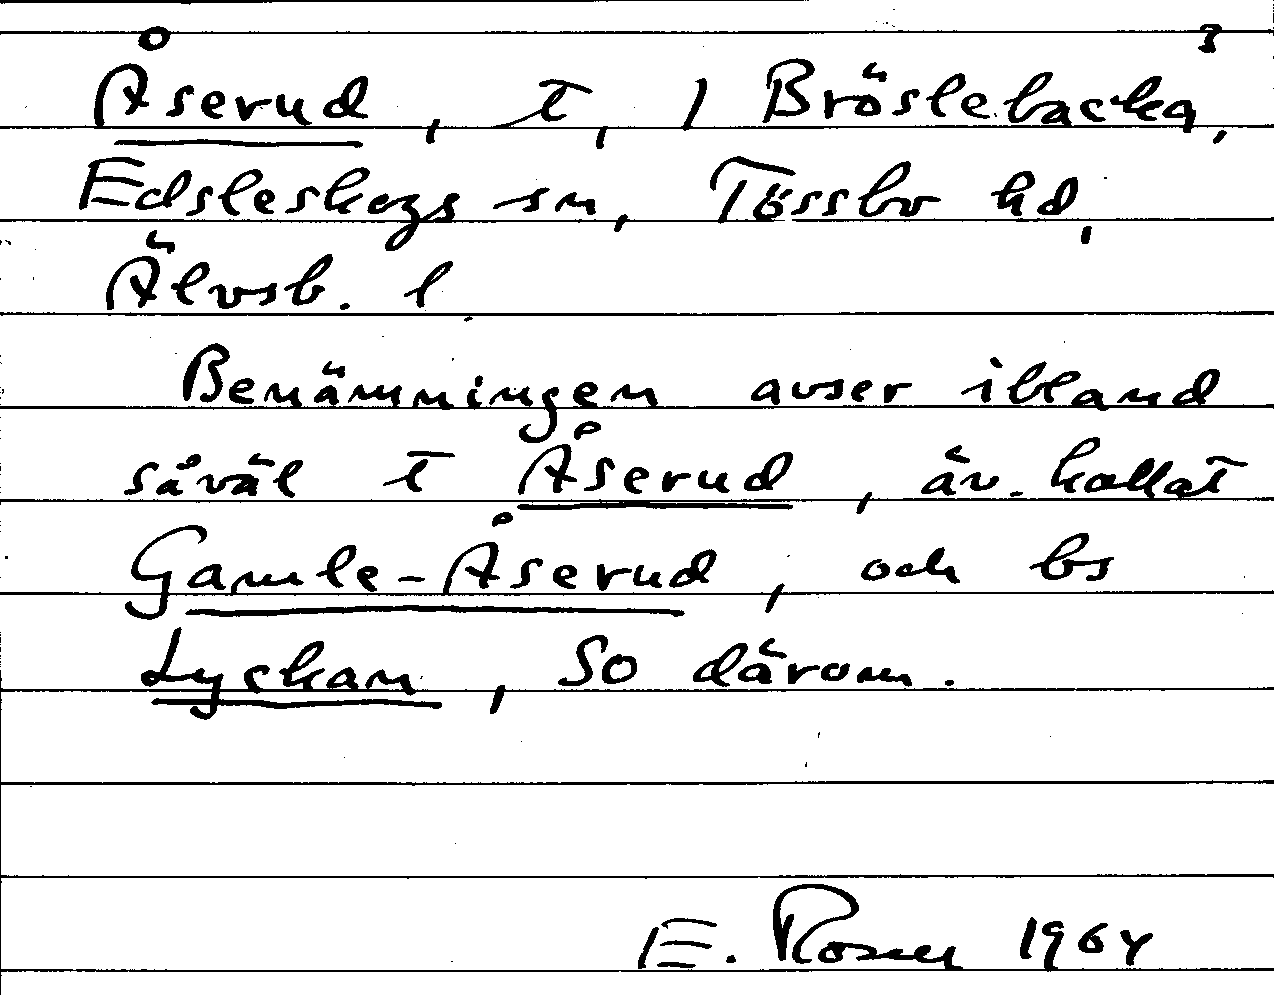 3
Åserud, t, 1 Bröslebacka,
Edsleskogs sn, Tössbo hd,
Älvsb. l
Benämningen avser ibland
såväl t Åserud, äv. kallat
Gamle-Åserud, och bs
Lyckan, SO därom.
E. Rosen 1964